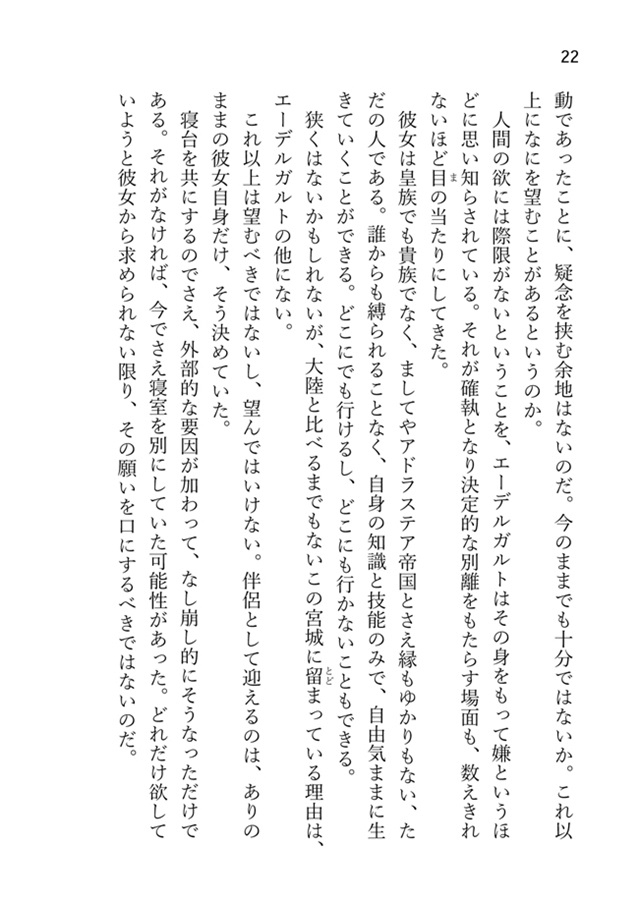 22
動であったことに、疑念を挟む余地はないのだ。今のままでも十分ではないか。これ以
上になにを望むことがあるというのか。
人間の欲には際限がないということを、エーデルガルトはその身をもって嫌というほ
どに思い知らされている。それが確執となり決定的な別離をもたらす場面も、数えきれ
ないほど目の当たりにしてきた。
ま
彼女は皇族でも貴族でなく、ましてやアドラステア帝国とさえ縁もゆかりもない、た
だの人である。誰からも縛られることなく、自身の知識と技能のみで、自由気ままに生
きていくことができる。どこにでも行けるし、どこにも行かないこともできる。
狭くはないかもしれないが、大陸と比べるまでもないこの宮城に留まっている理由は、
とど
エーデルガルトの他にない。
これ以上は望むべきではないし、望んではいけない。伴侶として迎えるのは、ありの
ままの彼女自身だけ、そう決めていた。
寝台を共にするのでさえ、外部的な要因が加わって、なし崩し的にそうなっただけで
ある。それがなければ、今でさえ寝室を別にしていた可能性があった。どれだけ欲して
いようと彼女から求められない限り、その願いを口にするべきではないのだ。